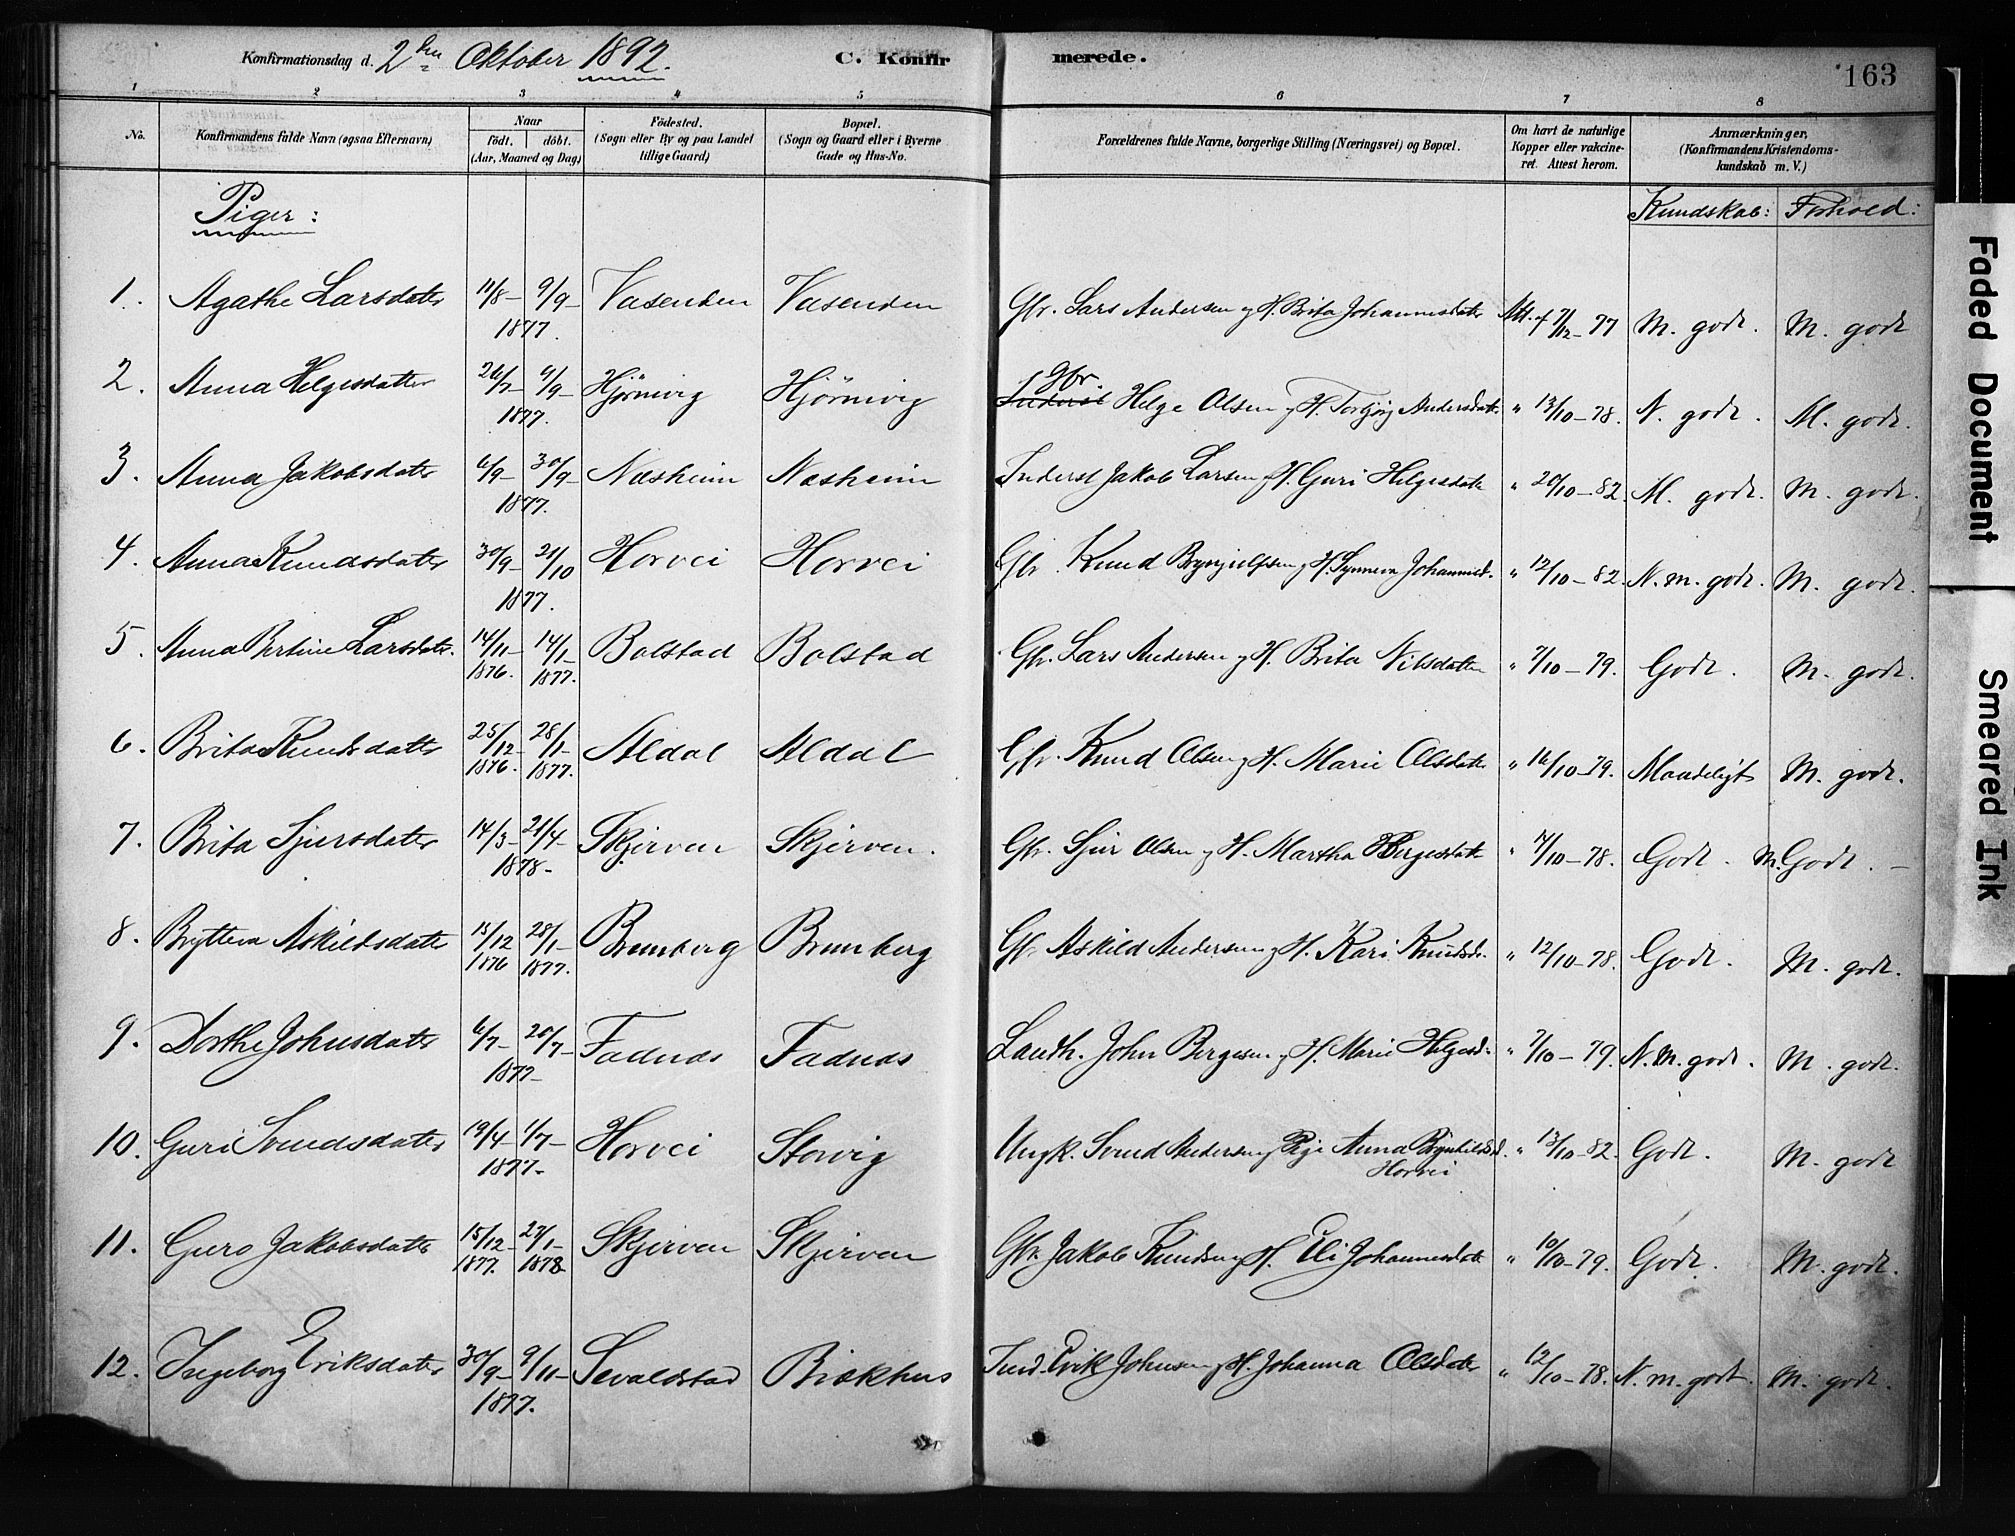 Konfirmationsdag d. 2den Oktober 1892. C. Konfirmerede. 163
1 2 3 4 5 6 7 8
No. Konfirmandens fulde Navn (ogsaa Efternavn) Naar født. døbt. (Aar, Maaned og Dag) Fødested. (Sogn eller By og paa Landet tillige Gaard) Bopæl. (Sogn og Gaard eller i Byerne Gade og Hus-No. Forældrenes fulde Navne, borgerlige Stilling (Næringsvei) og Bopæl. Om havt de naturlige Kopper eller vakcineret. Attest herom. Anmærkninger, (Konfirmandens Kristendomskundskab m. V.)
Piger: Kundskab: Forhold:
1. Agathe Larsdatter 11/8- 9/9- 1877. Vasenden Vasenden Gbr. Lars Andersen og H. Brita Johannesdatter Att. f 7/12-77 M. godt. M. godt
2. Anna Helgesdatter 26/7- 9/9- 1877. Hjörnevig Hjörnevig Gbr. Inderst Helge Olsen og H. Torbjørg Andersdatter " 13/10-78. N. godt. M. godt.
3. Anna Jakobsdatter 6/9- 30/9- 1877. Næsheim Næsheim Inderst Jakob Larsen og H. Guri Helgesdatter " 20/10-82. M. godt. M. godt.
4. Anna Knudsdatter 30/9- 21/10 1877. Horvei Horvei Gbr. Knud Brynjulfsen og H. Synneva Johannesd. " 12/10-82. N. m. godt. M. godt.
5. Anna Bertine Larsdatter. 14/11- 1876. 14/1- 1877. Bolstad Bolstad Gbr. Lars Andersen og H. Brita Nilsdatter " 7/10-79. Godt. M. godt.
6. Brita Knudsdatter 25/12- 1876. 28/1- 1877. Aldal Aldal Gbr. Knud Olsen og H. Marie Olsdatter " 16/10-79. Maadeligt M. godt.
7. Brita Sjursdatter 14/3- 21/4- 1878- Skjerven Skjerven. Gbr. Sjur Olsen og H. Martha Bergesdatter " 7/10-78. Godt. M. Godt. -
8. Bryteva Askildsdatter 15/12 1876 28/1- 1877. Brunberg Brunberg Gbr. Askild Andersen og H. Kari Knudsd. " 12/10-78. Godt. M. godt.
9. Dorthe Johnsdatter 6/7- 20/7- 1877- Fadnæs Fadnæs Landh. John Bergesen og H. Marie Helgesd. " 7/10-79. N. M. godt. M. godt.
10. Guri Svendsdatter 19/4- 1/7- 1877. Horvei Storvig Ungk. Svend Andersen og Pige Anna Brynhildsd. Horvei " 13/10-82. Godt. M. godt
11. Guro Jakobsdatter 15/12- 1877. 27/1- 1878 Skjerven Skjerven Gbr. Jakob Knudsen og H. Eli Johannesdatter " 10/10-79. Godt. M. godt.
12. Ingeborg Eriksdatter 30/9- 9/11- 1877. Sevaldstad Birkhus Ind. Erik Johnsen og H. Johanna Olsdatter " 12/10-78. N. m. godt. M. godt.
Faded Document
Smeared Ink